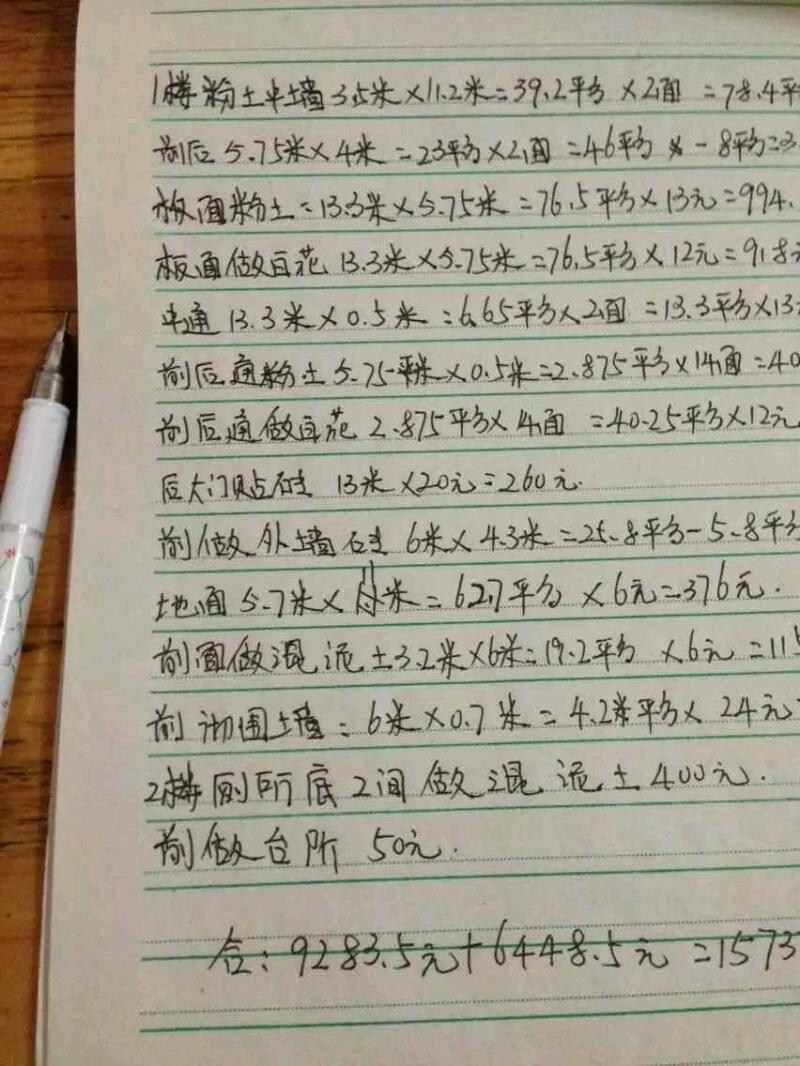 1楼粉土半墙3.5米×11.2米=39.2平方×2面=78.4平
前后5.75米×4米=23平方×2面=46平方-8平方=3
板面粉土=13.3米×5.75米=76.5平方×13元=994.
板面做白花13.3米×5.75米=76.5平方×12元=918元
半通13.3米×0.5米=6.65平方×2面=13.3平方×13
前后通粉土5.75米×0.5米=2.875平方×14面=40
前后通做白花2.875平方×4面=40.25平方×12元
后大门贴砖13米×20元=260元.
前做外墙砖6米×4.3米=25.8平方-5.8平方
地面5.7米×11米=62.7平方×6元=376元.
前面做混泥土3.2米×6米=19.2平方×6元=115
前 围墙=6米×0.7米=4.2平方×24元
2楼厕所底2间做混泥土400元.
前做台阶50元.
合:9283.5元+6448.5元=1573